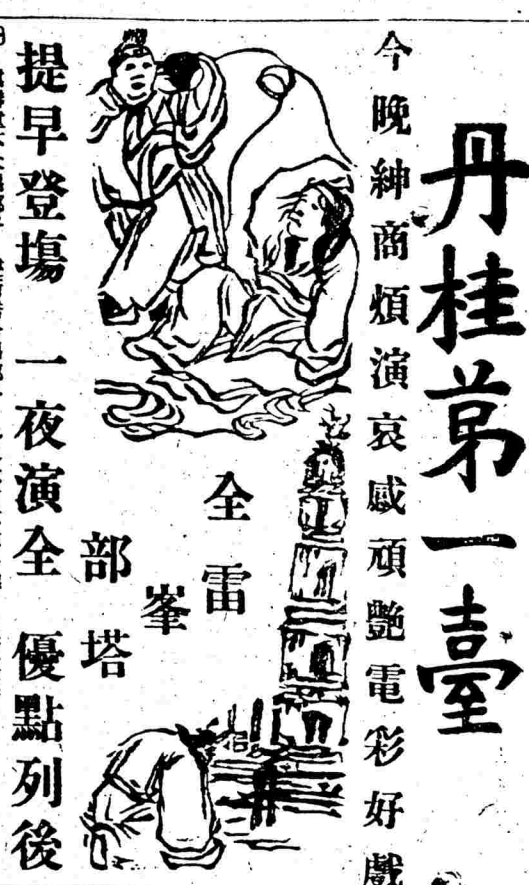 丹桂苐一臺
今晚紳商煩演哀感頑艷電彩好戲
全部
雷峯塔
提早登塲 一夜演全 優點列後